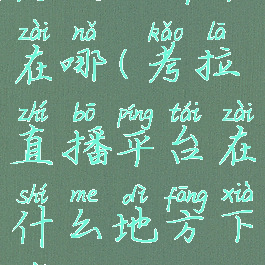 zài nǎ kǎo lā
在哪(考拉
zhí bō píng tái zài
直播平台在
shí me dì fāng xià
什么地方下